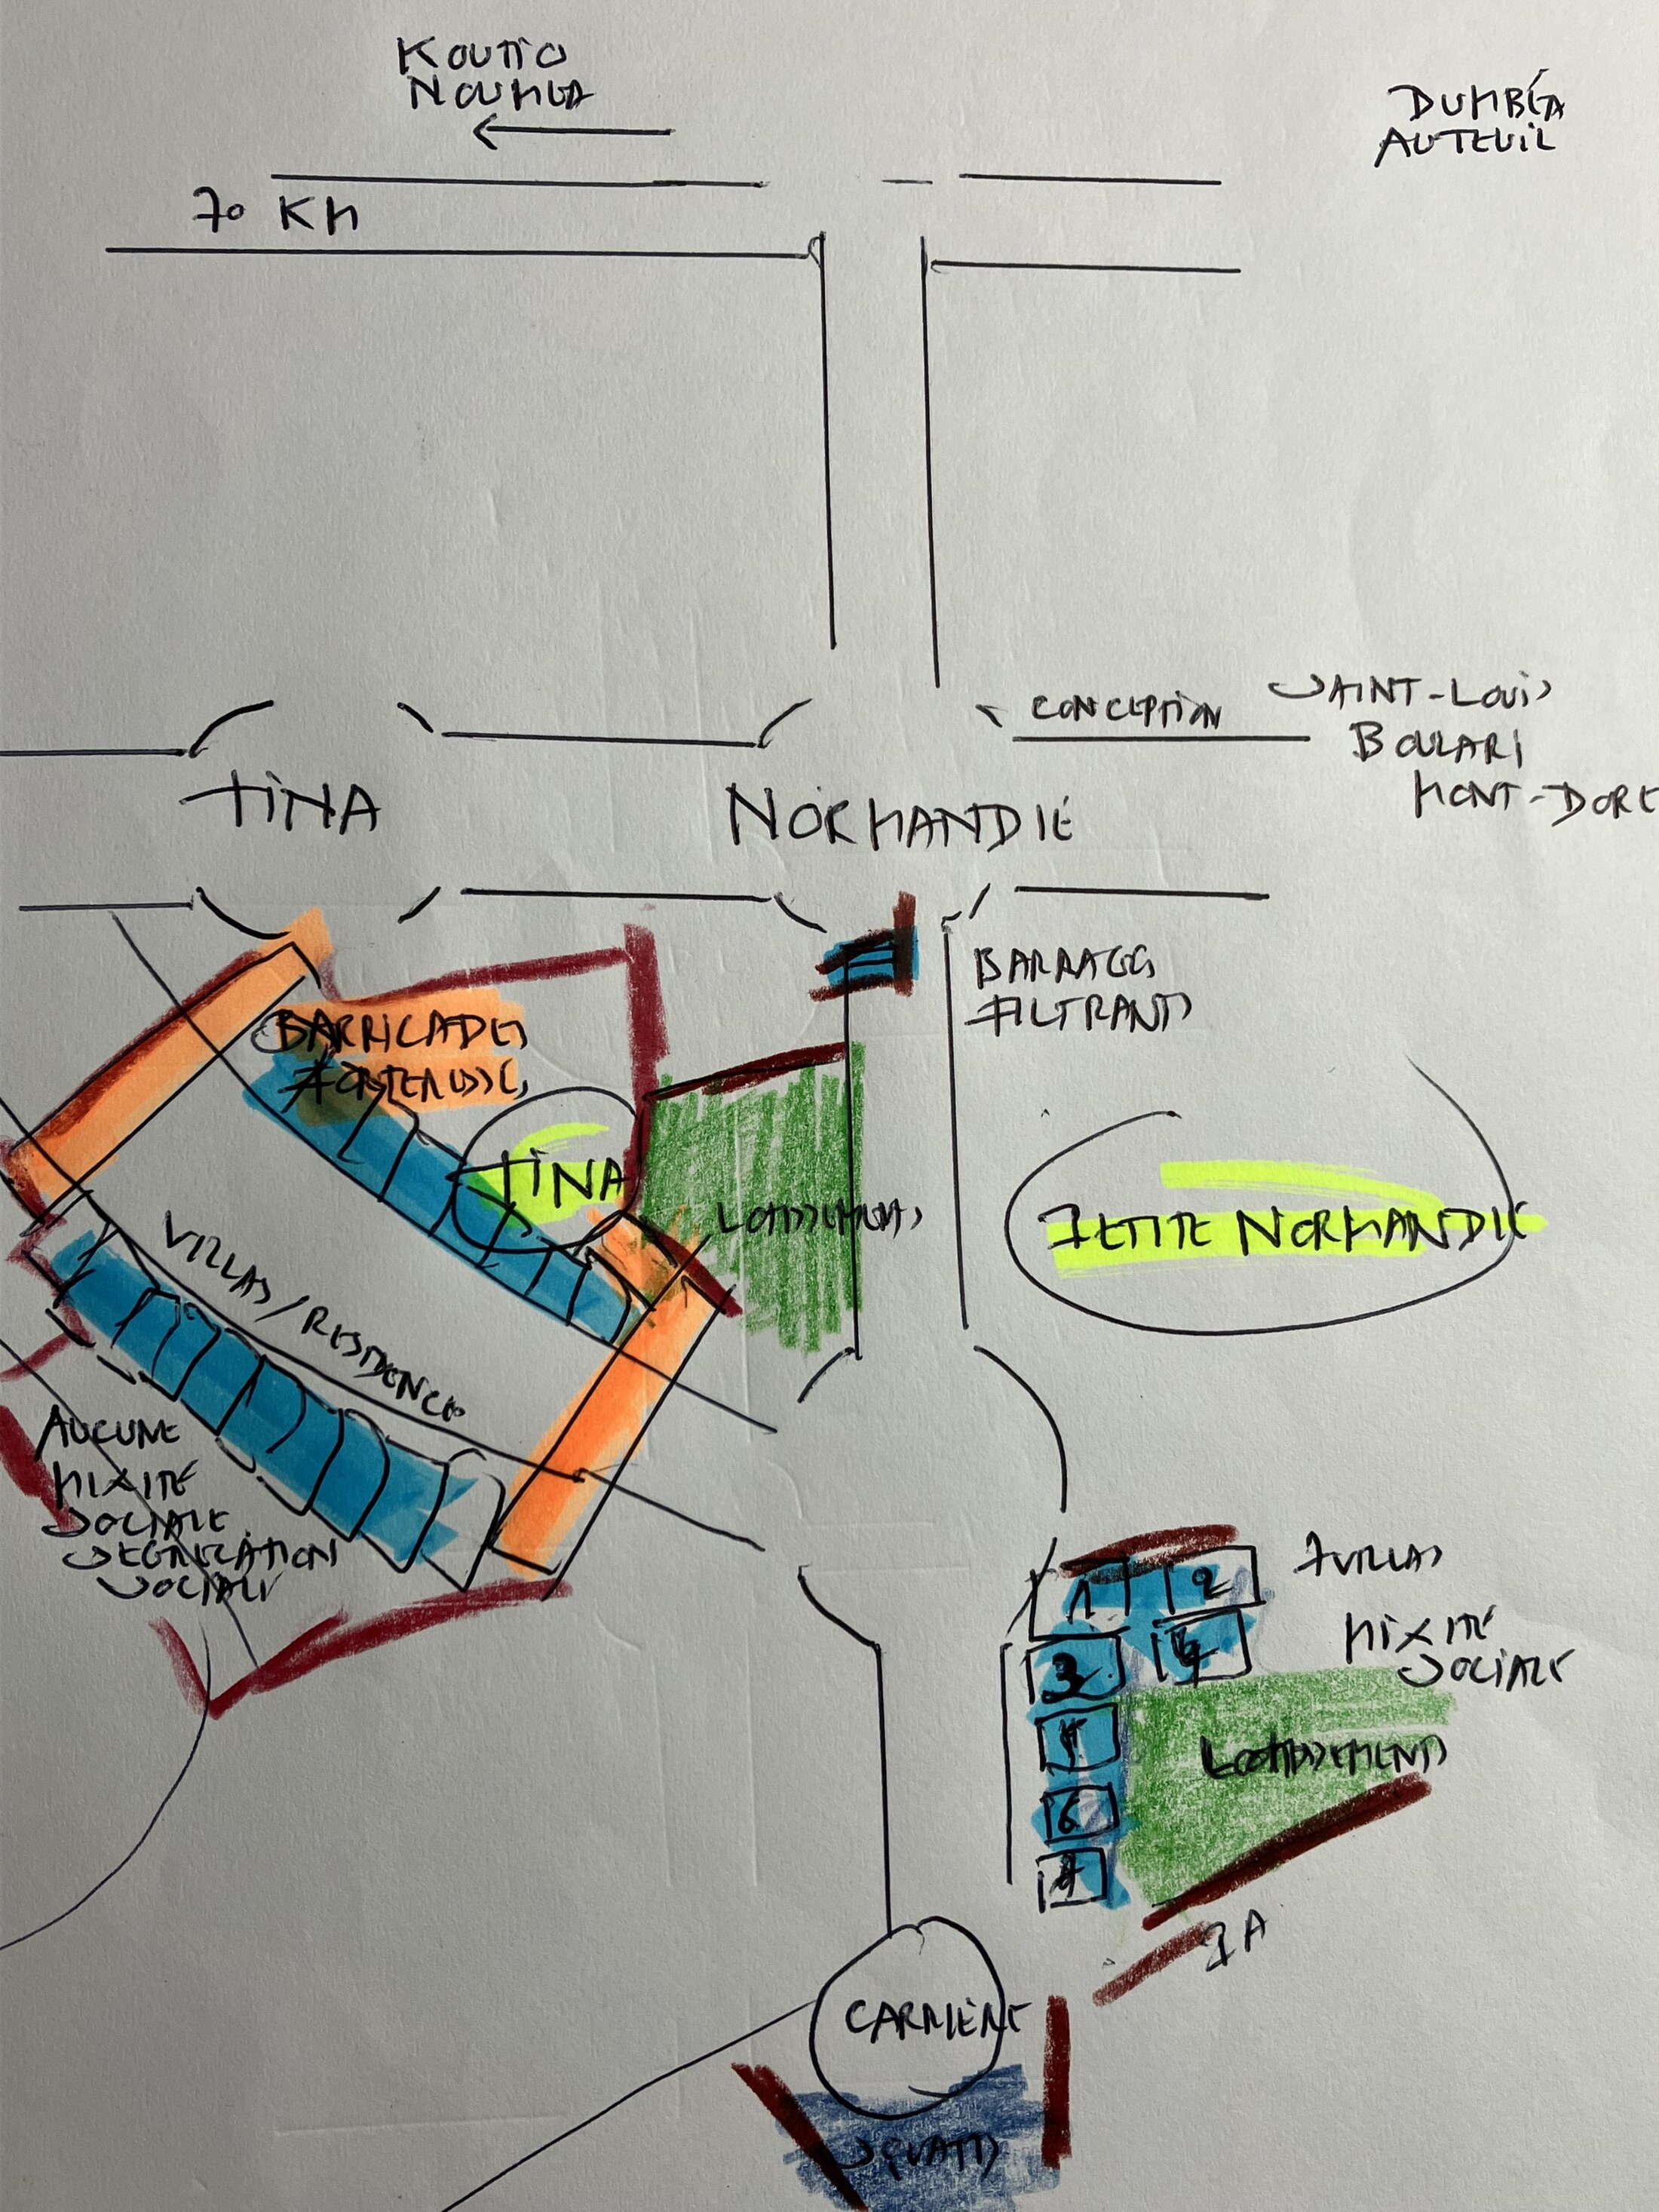 KOUTIO
NOUMEA
DUMBÉA
AUTEUIL
70 KM
CONCEPTION
SAINT-LOUIS
BOULARI
MONT-DORE
TINA
NORMANDIE
BARRAGES
FILTRANTS
BARRICADES
TINA
LOTISSEMENTS
PETITE NORMANDIE
VILLAS/RESIDENCES
AUCUNE
MIXITÉ
SOCIALE
SEGREGATION
SOCIALE
1 2
3 4
6
7
7 VILLAS
MIXITÉ
SOCIALE
LOTISSEMENTS
CARRIÈRE
SQUATTS